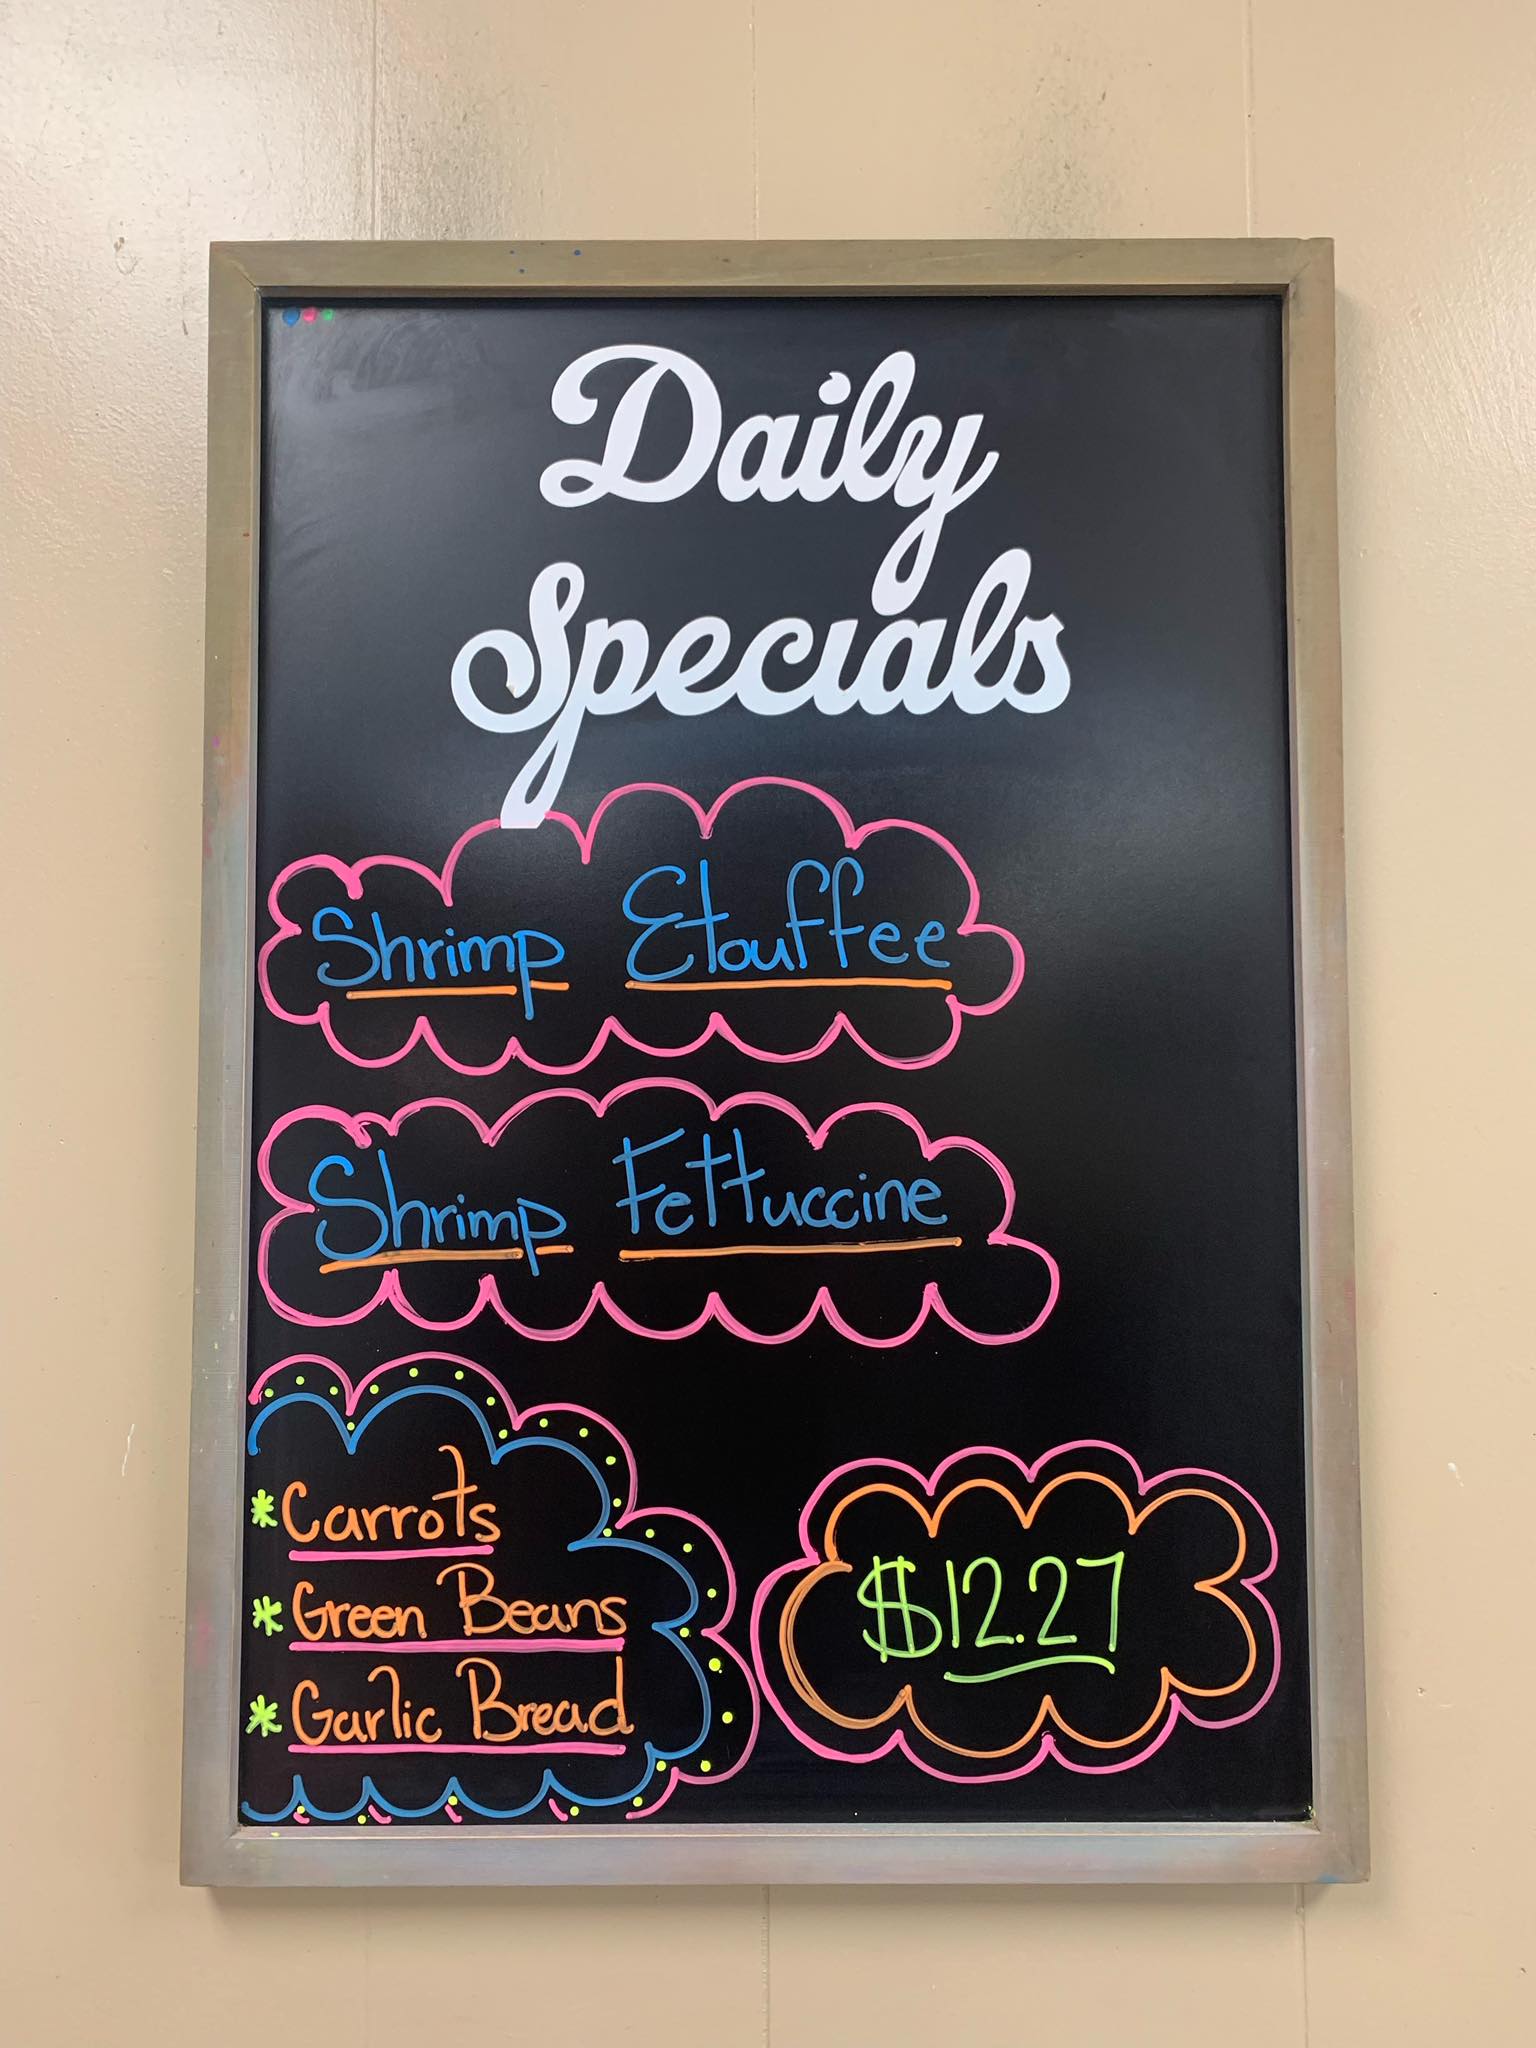 Daily
Specials
Shrimp Etouffee
Shrimp Fettuccine
* Carrots
* Green Beans
* Garlic Bread
$12.27